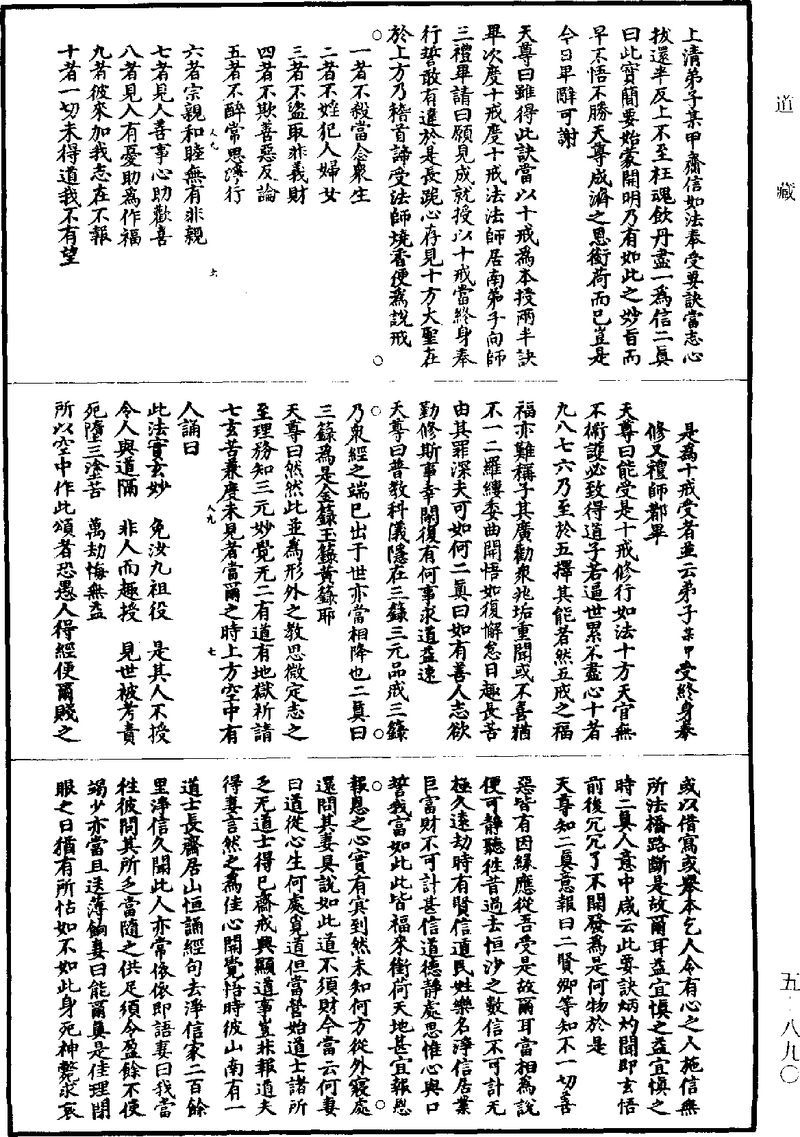 道藏
上清弟子某甲齋信如法奉受要訣當志心
拔還半反上不至枉魂飲丹盡一爲信二真
曰此實簡要始蒙開明乃有如此之妙旨而
早不悟不勝天尊成濟之恩銜荷而已豈是
今日早辭可謝
天尊曰雖得此訣當以十戒爲本授兩半訣
畢次度十戒度十戒法法師居南弟子向師
三禮畢請曰願見成就授以十戒當終身奉
行誓敢有違於是長跪心存見十方大聖在
於上方乃稽首諦受法師燒香便爲說戒
一者不殺當念衆生
二者不婬犯人婦女
三者不盜取非義財
四者不欺善惡反論
五者不醉常思淨行
六者宗親和睦無有非親
七者見人善事心助歡喜
八者見人有憂助爲作福
九者彼來加我志在不報
十者一切未得道我不有望
是爲十戒受者並云弟子某甲受終身奉
修又禮師都畢
天尊曰能受是十戒修行如法十方天官無
不衛護必致得道子若逼世累不盡心十者
九八七六乃至於五擇其能者然五戒之福
福亦難稱子其廣勸衆兆垢重聞或不喜猶
不一二羅縷委曲開悟如復懈怠日趣長苦
由其罪深夫可如何二真曰如有善人志欲
勤修斯事幸聞復有何事求道益速
天尊曰普教科儀隱在三籙三元品戒三籙
乃衆經之端已出于世亦當相降也二真曰
三籙爲是金籙玉籙黃籙耶
天尊曰然然此並爲形外之教思微定志之
至理務知三元妙覺无二有道有地獄祈請
七玄苦兼度未見者當爾之時上方空中有
人誦曰
此法實玄妙 免汝九祖役 是其人不授
令人與道隔 非人而趣授 見世被考責
死墮三塗苦 萬劫悔無益
所以空中作此頌者恐愚人得經便爾賤之
或以借寫或舉本乞人令有心之人施信無
所法橋路斷是故爾耳益宜慎之益宜慎之
時二真人意中咸云此要訣炳灼聞即玄悟
前後冗冗了不開發爲是何物於是
天尊知二真意報曰二賢卿等知不一切善
惡皆有因緣應從吾受是故爾耳當相爲說
便可靜聽往昔過去恒沙之數信不可計无
極久遠劫時有賢信道民姓樂名淨信居業
巨富財不可計甚信道德靜處思惟心與口
誓我富如此此皆福來銜荷天地甚宜報恩
報恩之心實有冥到然未知何方從外寢處
還問其妻具說如此道不須財今當云何妻
曰道從心生何處覓道但當營始道士諸所
乏无道士得已齋戒興顯道事豈非報道夫
得妻言然之爲佳心開覺悟時彼山南有一
道士長齋居山恒誦經句去淨信家二百餘
里淨信久聞此人亦常依依即語妻曰我當
往彼問其所乏當隨之供足須令盈餘不使
竭少亦當且送薄餉妻曰能爾真是佳理閉
眼之日猶有所怙如不如此身死神弊求哀
五·八九〇